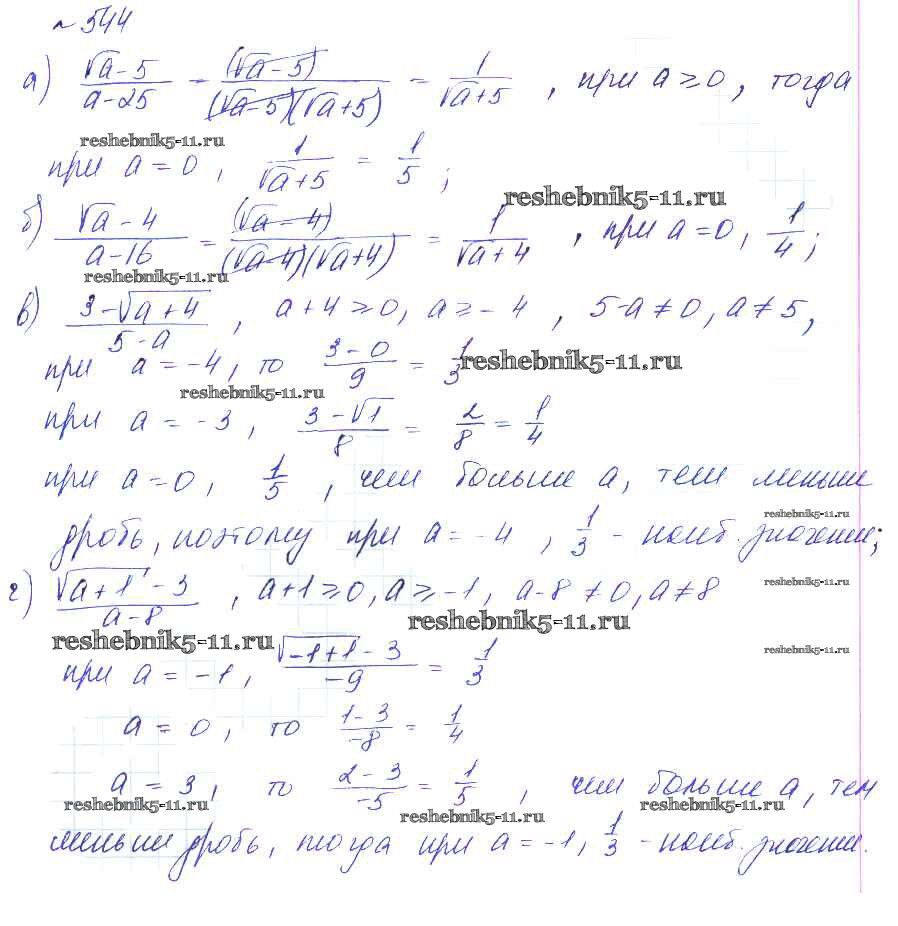 № 544
а) (√a - 5)/(a - 25) = (√a - 5)/((√a - 5)(√a + 5)) = 1/(√a + 5) , при a ≥ 0, тогда
reshebnik5-11.ru
при a = 0, 1/(√a + 5) = 1/5 ;
reshebnik5-11.ru
б) (√a - 4)/(a - 16) = (√a - 4)/((√a - 4)(√a + 4)) = 1/(√a + 4) , при a = 0, 1/4 ;
reshebnik5-11.ru
в) (3 - √(a + 4))/(5 - a) , a + 4 ≥ 0, a ≥ - 4 , 5 - a ≠ 0, a ≠ 5,
при a = -4, то (3 - 0)/9 = 1/3 reshebnik5-11.ru
reshebnik5-11.ru
при a = -3, (3 - √1)/8 = 2/8 = 1/4
при a = 0, 1/5 , чем больше a, тем меньше
reshebnik5-11.ru
дробь, поэтому при a = -4 , 1/3 - наиб. значение;
г) (√(a + 1) - 3)/(a - 8) , a + 1 ≥ 0, a ≥ -1, a - 8 ≠ 0, a ≠ 8 reshebnik5-11.ru
reshebnik5-11.ru reshebnik5-11.ru reshebnik5-11.ru
при a = -1, (√(-1 + 1) - 3)/-9 = 1/3
a = 0, то (1 - 3)/-8 = 1/4
a = 3, то (2 - 3)/-5 = 1/5 , чем больше a, тем
reshebnik5-11.ru reshebnik5-11.ru reshebnik5-11.ru
меньше дробь, тогда при a = -1, 1/3 - наиб. значение.